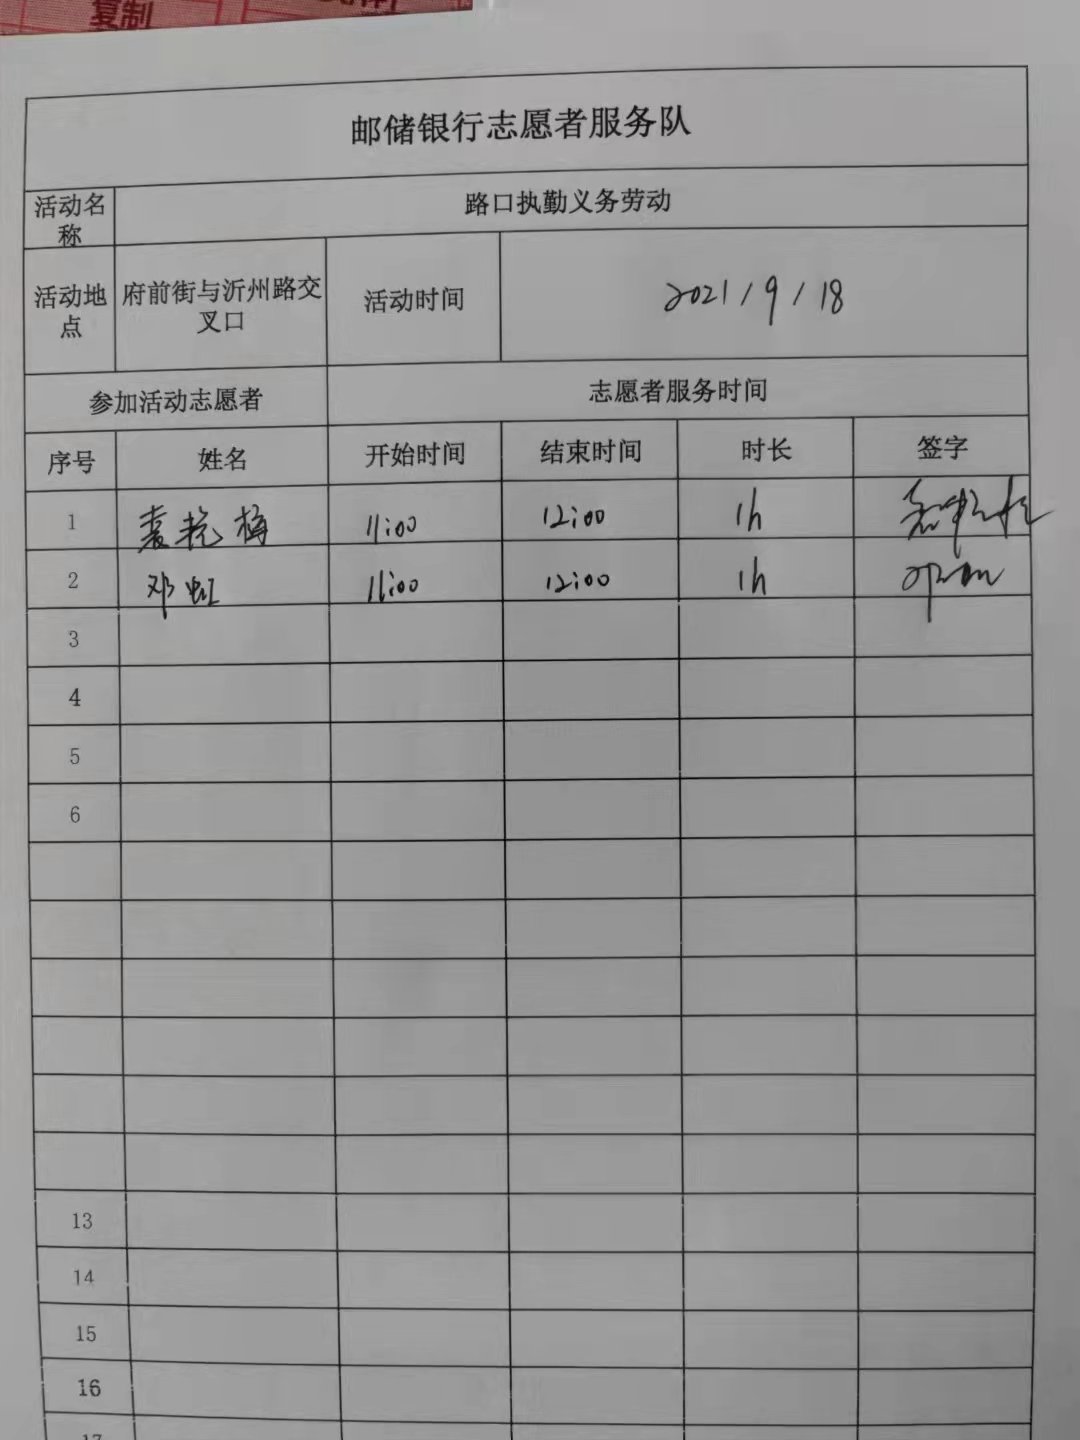 复制
邮储银行志愿者服务队
活动名称 路口执勤义务劳动
活动地点 府前街与沂州路交叉口 活动时间 2021/9/18
参加活动志愿者 志愿者服务时间
序号 姓名 开始时间 结束时间 时长 签字
1 袁艳梅 11:00 12:00 1h
2 邓虹 11:00 12:00 1h
3
4
5
6
13
14
15
16
17